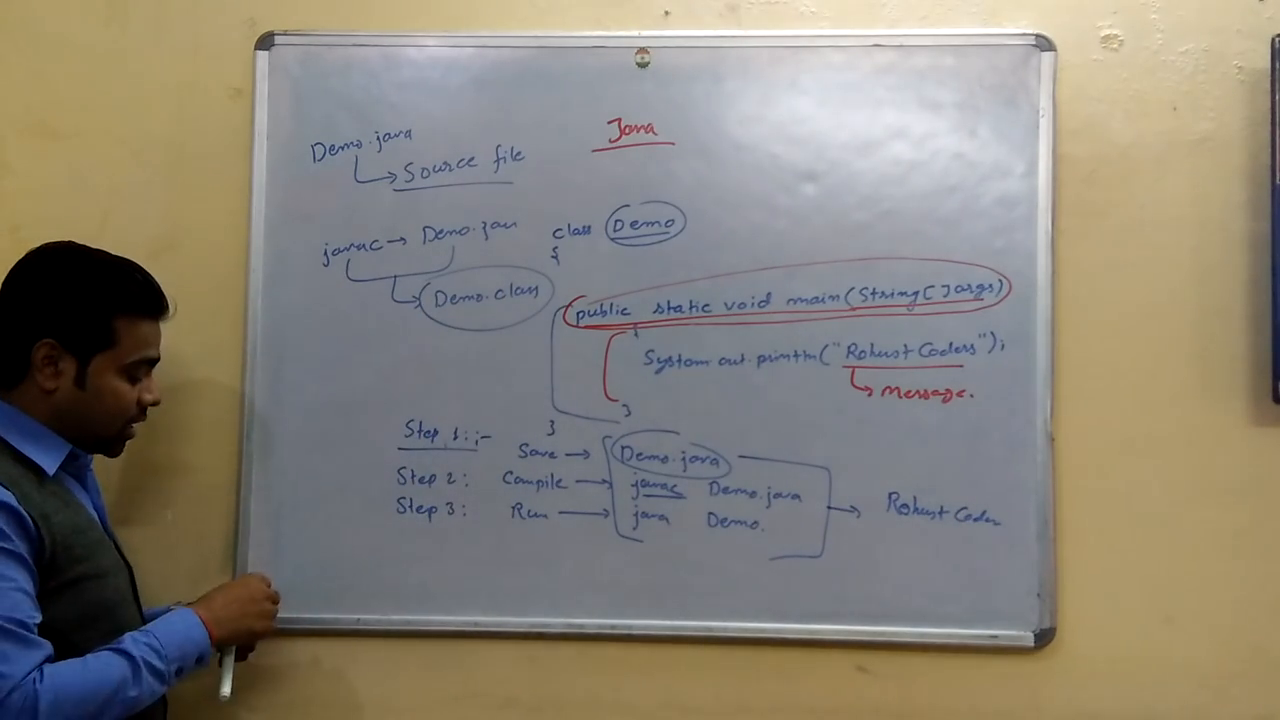 Java
Demo.java
Source file
javac → Demo.java
Demo.class
class Demo
{
public static void main(String[]args)
{
System.out.println("Robust Coders");
message.
}
}
Step 1:;-
Save → Demo.java
Step 2: Compile → javac Demo.java
Step 3: Run → java Demo.
→ Robust Coder